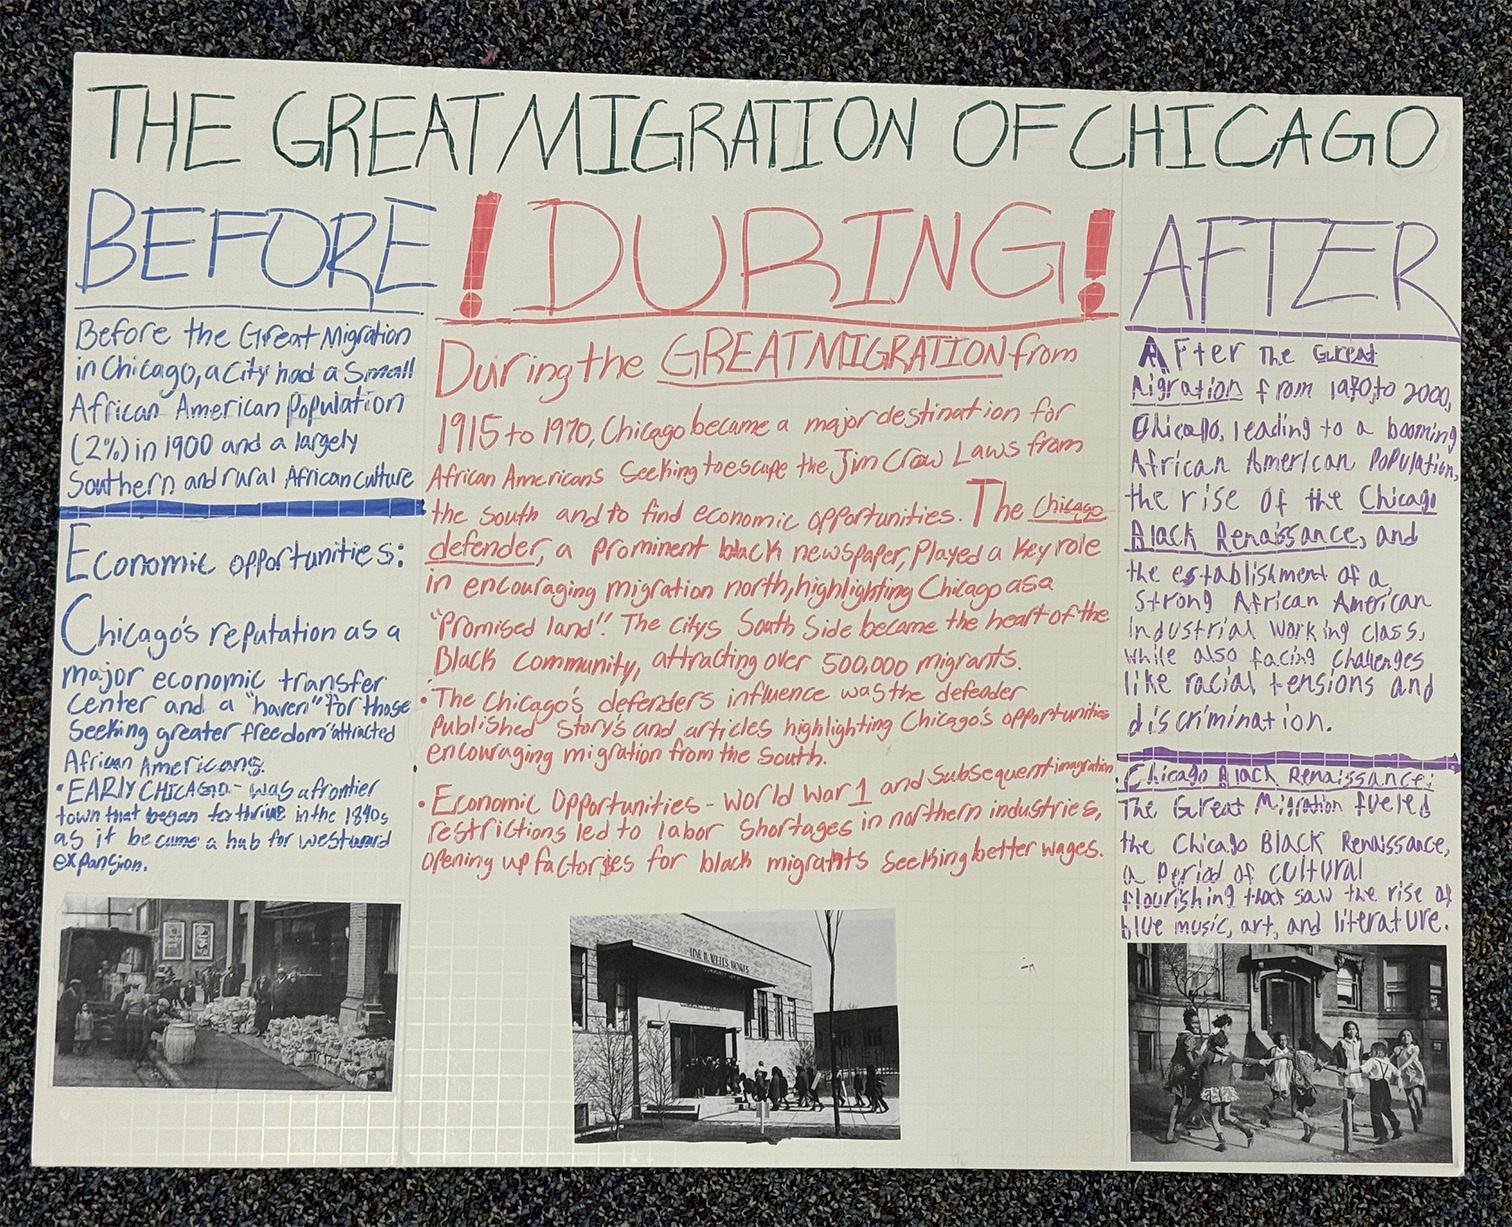 THE GREAT MIGRATION OF CHICAGO
BEFORE
Before the Great Migration
in Chicago, a City had a Small
African American Population
(2%) in 1900 and a largely
Southern and rural African culture
Economic opportunities:
Chicago's reputation as a
major economic transfer
Center and a "haven" for those
Seeking greater freedom attracted
African Americans.
• EARLY CHICAGO - was a frontier
town that began to thrive in the 1840s
as it became a hub for westward
expansion.
! DURING!
During the GREAT MIGRATION from
1915 to 1970, Chicago became a major destination for
African Americans Seeking to escape the Jim Crow Laws from
the south and to find economic opportunities. The Chicago
defender, a prominent black newspaper, Played a key role
in encouraging migration north, highlighting Chicago as a
"Promised land". The citys South Side became the heart of the
Black Community, attracting over 500,000 migrants.
• The Chicago's defenders influence was the defender
Published Story's and articles highlighting Chicago's opportunities
encouraging migration from the South.
• Economic Opportunities - World War 1 and Subsequent imagration
restrictions led to labor shortages in northern industries,
opening up factories for black migrants seeking better wages.
IDA B. WELLS HOMES
AFTER
AFter The Great
Migration from 1970 to 2000,
Chicago, leading to a booming
African American Population,
the rise of the Chicago
Black Renaissance, and
the establishment of a
Strong African American
industrial working class,
while also facing challenges
like racial tensions and
discrimination.
Chicago Black Renaissance:
The Great Migration fueled
the Chicago Black Renaissance,
a Period of cultural
flourishing that saw the rise of
blue music, art, and literature.